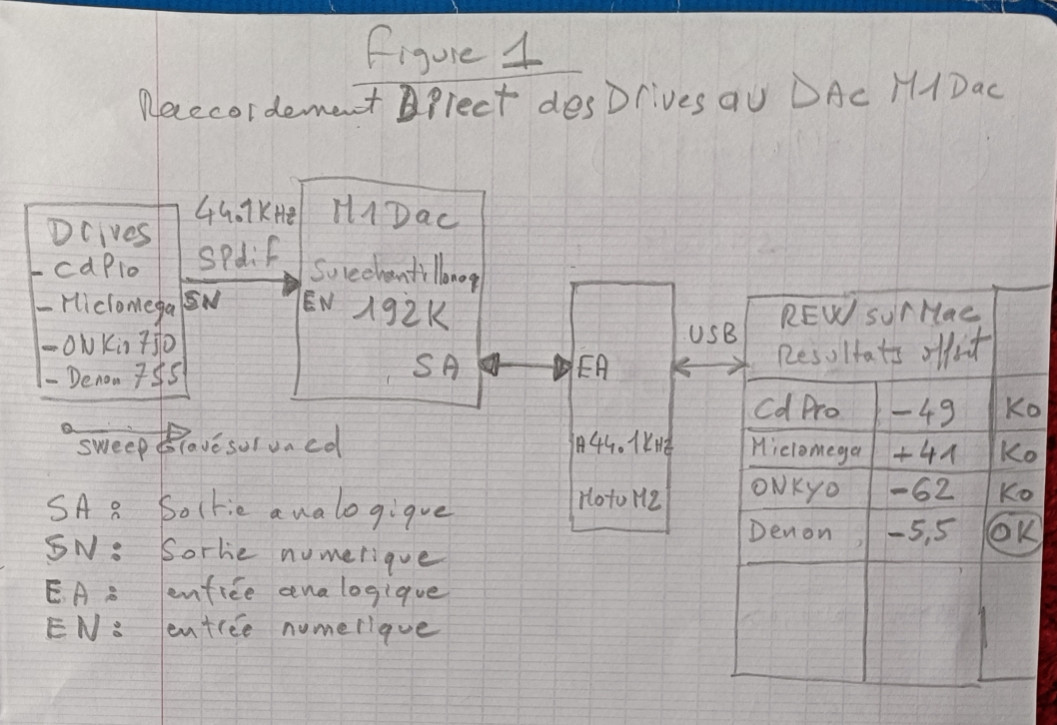 Figure 1
Raccordement Direct des Drives au DAC M1Dac
Drives
- cdPro
- Micromega
- ONKio 750
- Denon 755
44.1KHz
SPdif
SN
M1Dac
EN 192K
SA
EA
A 44.1KHz
MotuM2
USB
REW sur Mac
Resultats offset
Cd Pro -49 Ko
Micromega +41 Ko
ONKYO -62 Ko
Denon -5,5 OK
sweep Gravé sur un cd
SA : Sortie analogique
SN : Sortie numerique
EA : entrée analogique
EN : entrée numerique